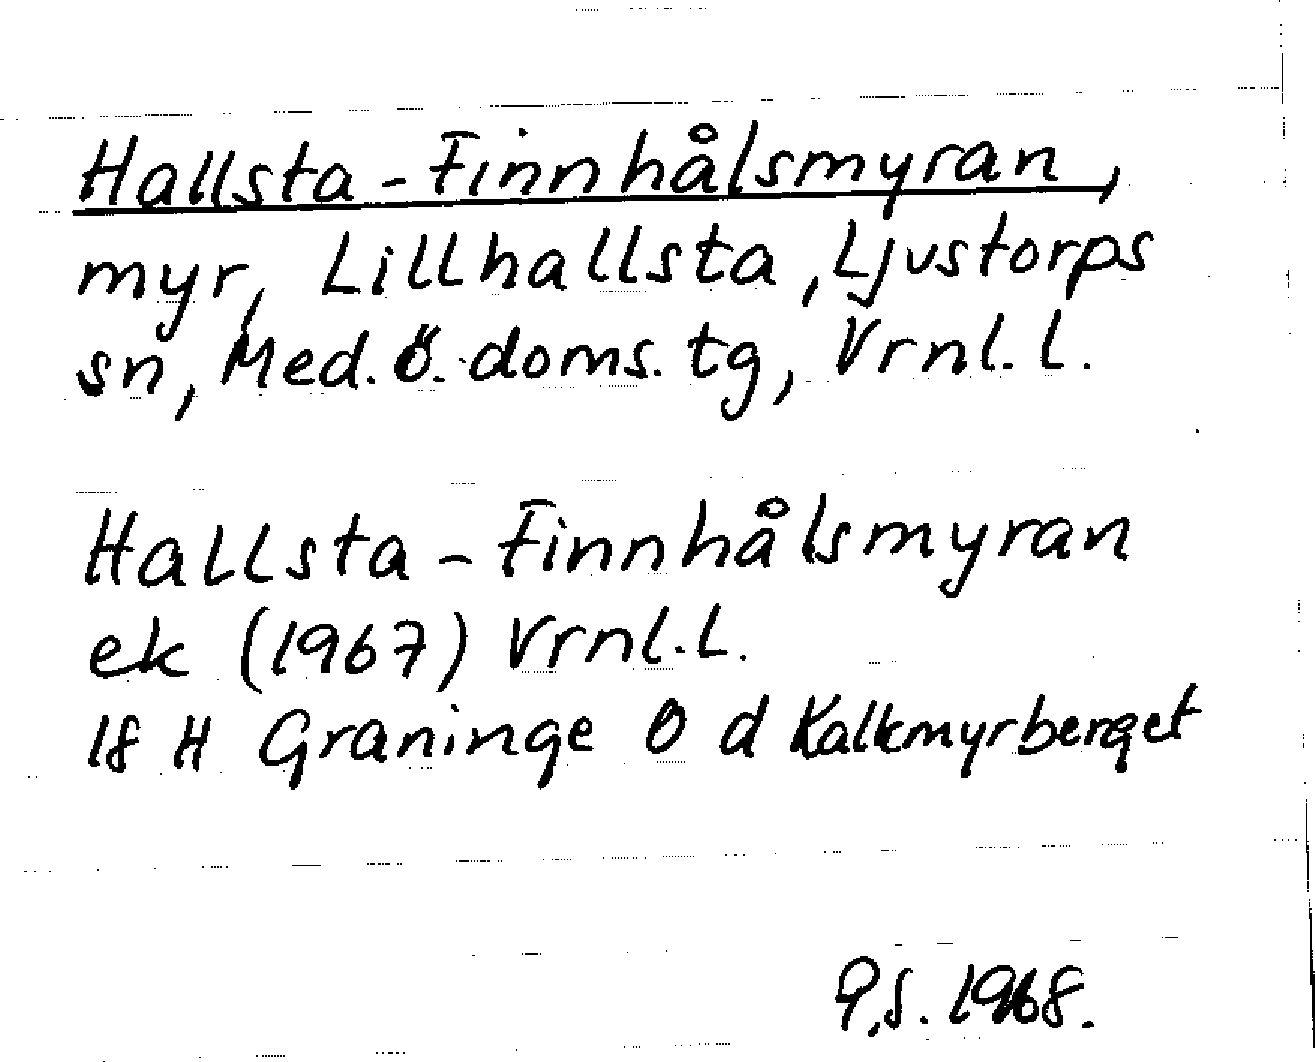 Hallsta-Finnhålsmyran,
myr, Lillhallsta, Ljustorps
sn, Med.ö.doms.tg, Vrnl.l.
Hallsta-Finnhålsmyran
ek (1967) Vrnl.l.
18 H Graninge O d Kalkmyrberget
P.S. 1968.